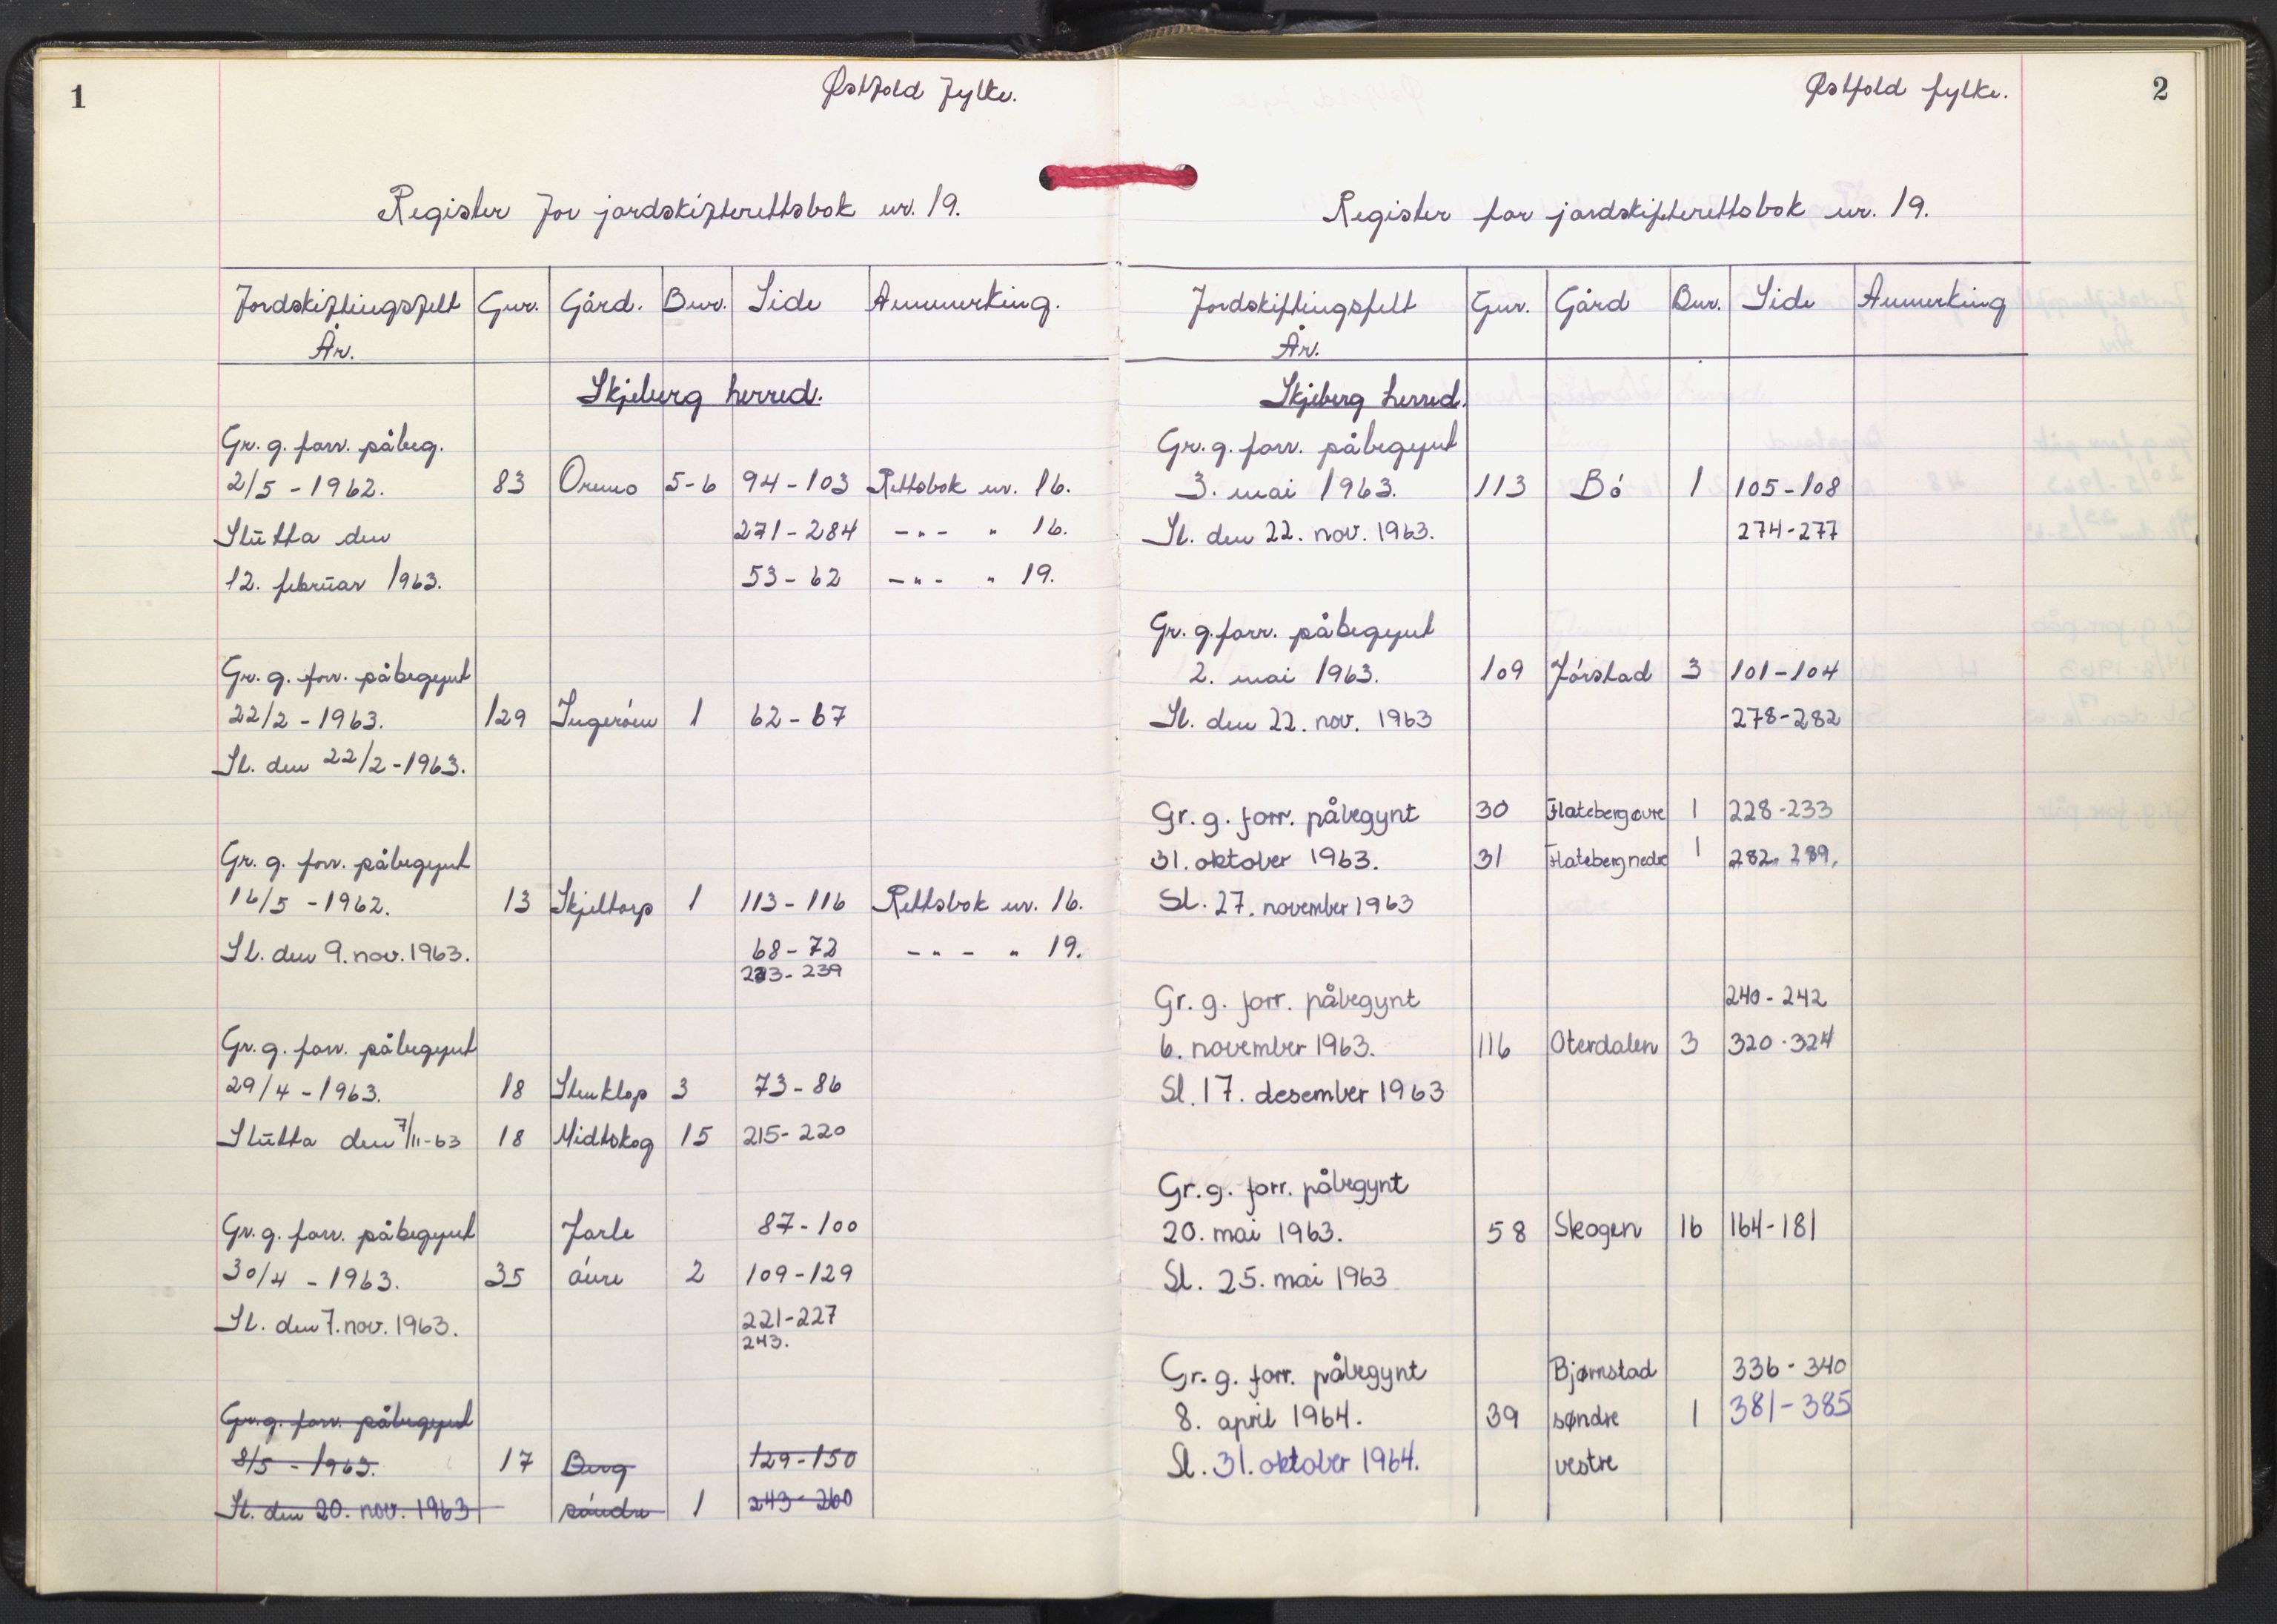 1
Østfold fylke.
Register for jordskifterettsbok nr. 19.
Jordskiftingsfelt År. Gnr. Gård. Bnr. Side Anmerking.
Skjeberg herred.
Gr. g. forr. påbeg.
2/5 - 1962. 83 Ormo 5-6 94-103 Rettsbok nr. 16.
Slutta den 271-284 -"- " 16.
12. februar 1963. 53-62 -"- " 19.
Gr. g. forr. påbegynt
22/2 - 1963. 129 Ingerøen 1 62-67
Sl. den 22/2-1963.
Gr. g. forr. påbegynt
16/5 - 1962. 13 Skjeltorp 1 113-116 Rettsbok nr. 16.
Sl. den 9. nov. 1963. 68-72 -"- " 19.
233-239
Gr. g. forr. påbegynt
29/4 - 1963. 18 Stenklop 3 73-86
Slutta den 7/11-63 18 Midtskog 15 215-220
Gr. g. forr. påbegynt Jarle 87-100
30/4 - 1963. 35 øvre 2 109-129
Sl. den 7. nov. 1963. 221-227
243.
Gr. g. forr. påbegynt
8/5 - 1963. 17 Berg 129-150
Sl. den 20. nov. 1963 søndre 1 243-260
2
Østfold fylke.
Register for jordskifterettsbok nr. 19.
Jordskiftingsfelt År. Gnr. Gård Bnr. Side Anmerking
Skjeberg herred.
Gr. g. forr. påbegynt
3. mai 1963. 113 Bø 1 105-108
Sl. den 22. nov. 1963. 274-277
Gr. g. forr. påbegynt
2. mai 1963. 109 Jørstad 3 101-104
Sl. den 22. nov. 1963 278-282
Gr. g. forr. påbegynt 30 Flateberg øvre 1 228-233
31. oktober 1963. 31 Flateberg nedre 1 282-289.
Sl. 27. november 1963
Gr. g. forr. påbegynt 240-242
6. november 1963. 116 Oterdalen 3 320-324
Sl. 17. desember 1963
Gr. g. forr. påbegynt
20. mai 1963. 58 Skogen 16 164-181
Sl. 25. mai 1963
Gr. g. forr. påbegynt Bjørnstad 336-340
8. april 1964. 39 søndre 1 381-385
Sl. 31. oktober 1964. vestre